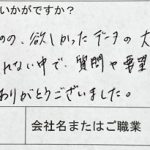 いかがですか?
のの、欲しかったデータの大
れない中で、質問や要望
ありがとうございました。
会社名またはご職業